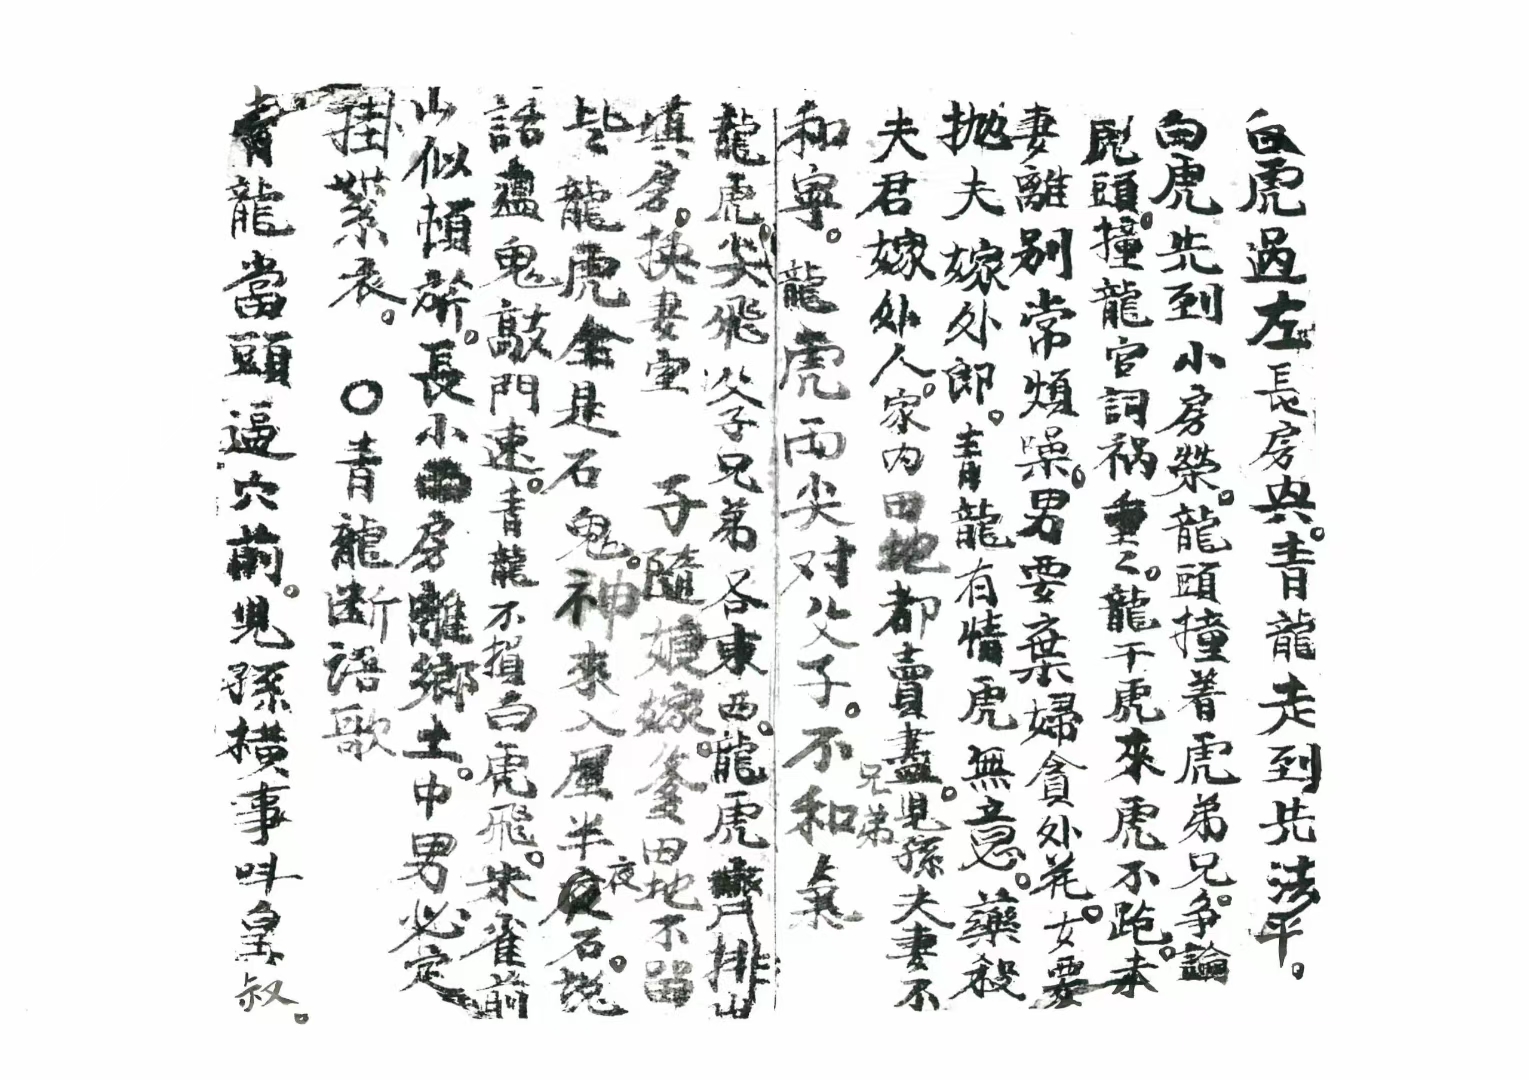 白虎過左長房興。青龍走到先法平。
白虎先到小房榮。龍頭撞着虎弟兄。争論
鬼頭。撞龍官詞禍重々。龍干虎來虎不跑。夫
妻離別常煩噪。男要棄婦貪外花。女要
抛夫嫁外郎。青龍有情虎無意。藥殺
夫君嫁外人。家内田地都賣盡。児孫夫妻不
和寧。龍虎両尖对父子。不和兄弟氣
龍虎尖飛父子兄弟各東西。龍虎齊排山
填房。换妻室 子隨娘嫁爹田地不留
皆龍虎全是石鬼。神來入屋半夜石塊
話盡鬼敲門速。青龍不損白虎飛。朱雀前
山似頓。長小房離鄉土。中男必定
掛蔴衣。 〇青龍断語歌
青龍當頭逼穴前。児孫横事叫皇叔。